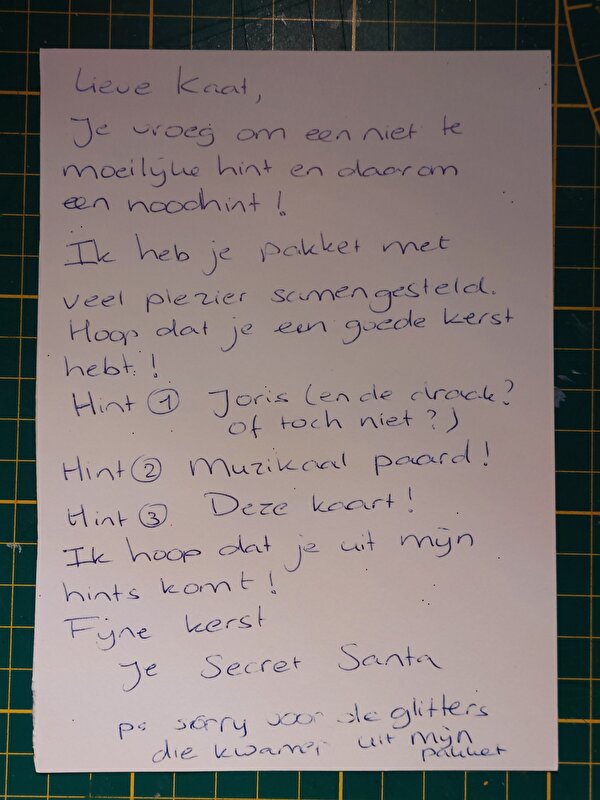 Lieve Kaat,
Je vroeg om een niet te
moeilijke hint en daarom
een noodhint!
Ik heb je pakket met
veel plezier samengesteld.
Hoop dat je een goede kerst
hebt!
Hint ① Joris (en de draak?
of toch niet?)
Hint ② Muzikaal paard!
Hint ③ Deze kaart!
Ik hoop dat je uit mijn
hints komt!
Fijne kerst
Je Secret Santa
ps sorry voor de glitters
die kwamen uit mijn
pakket